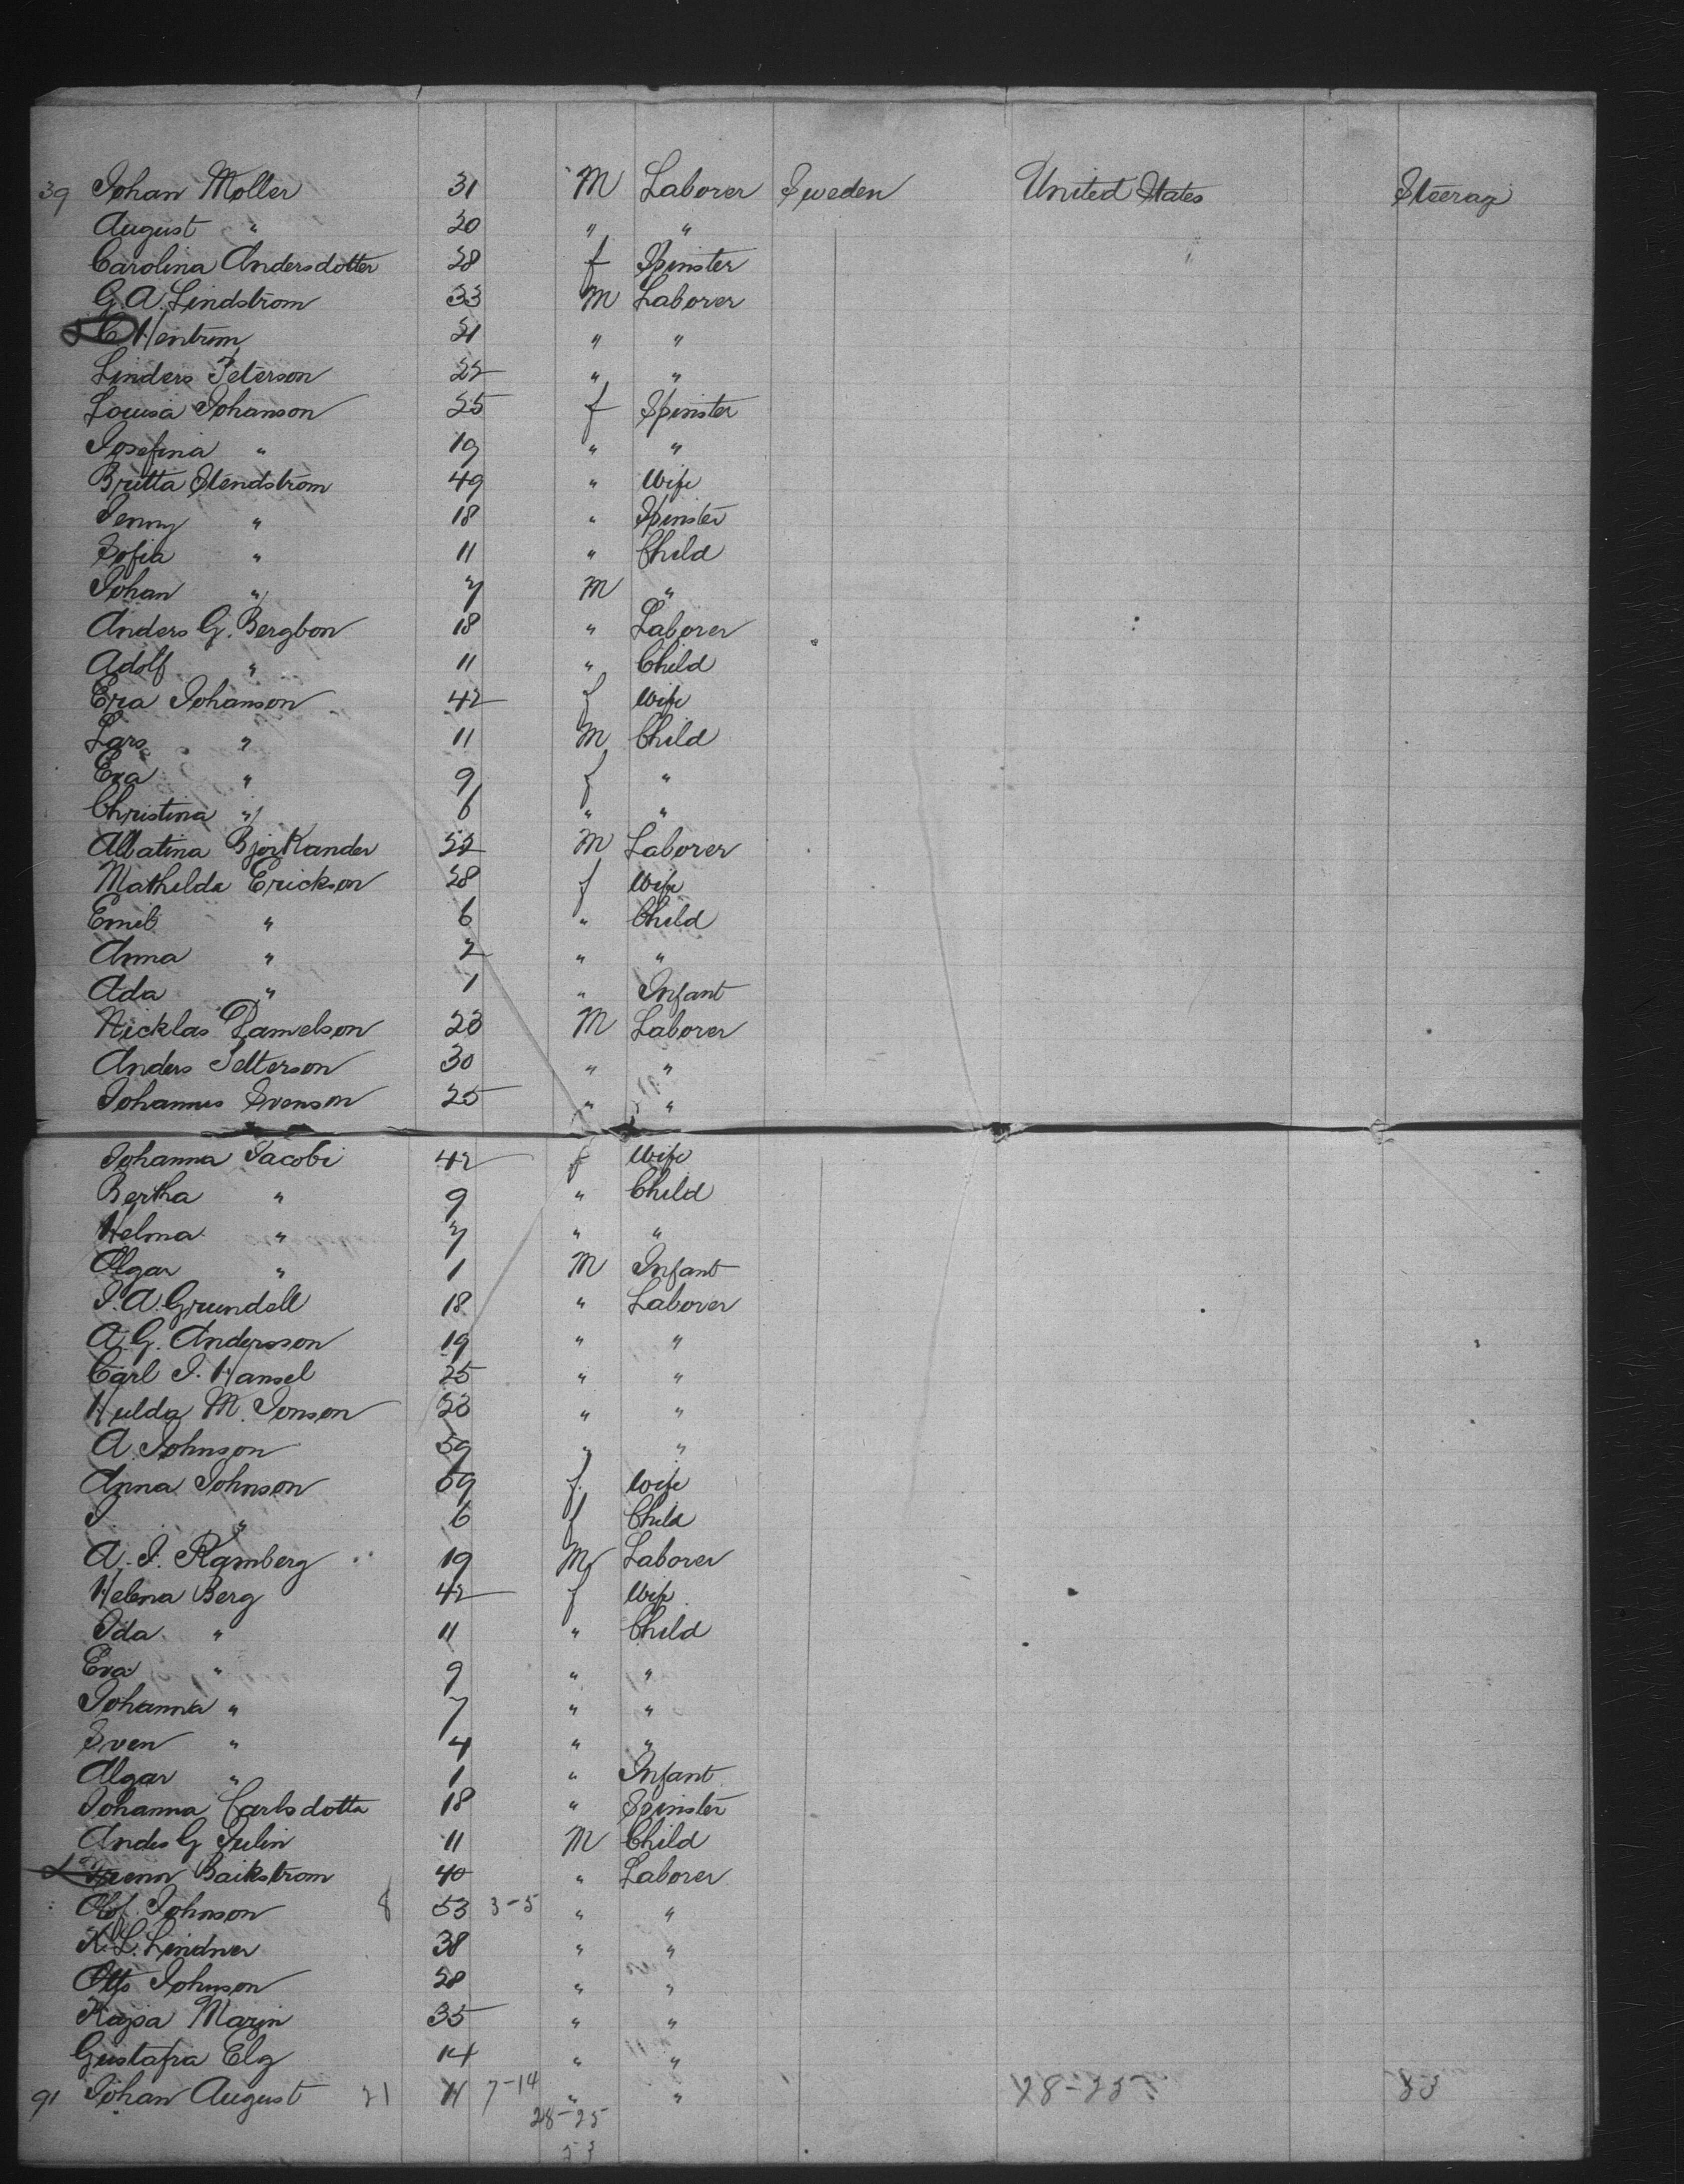 39 Johan Moller 31 M Laborer Sweden United States Steerage
August " 20 " "
Carolina Andersdotter 28 f Spinster
G. A. Lindstrom 33 M Laborer
C Hentrom 21 " "
Linders Peterson 22 " "
Louisa Johanson 25 f Spinster
Josefina " 19 " "
Britta Stendstrom 49 " Wife
Jenny " 18 " Spinster
Sofia " 11 " Child
Johan " 7 M "
Anders G. Bergbon 18 " Laborer
Adolf " 11 " Child
Eva Johanson 42 f Wife
Lars " 11 M Child
Eva " 9 f "
Christina " 6 " "
Albatina Bjorkander 22 M Laborer
Mathilda Erickson 28 f Wife
Emil " 6 " Child
Anna " 2 " "
Ada " 1 " Infant
Nicklas Damelson 23 M Laborer
Anders Petterson 30 " "
Johannes Svenson 25 " "
Johanna Jacobi 42 f Wife
Bertha " 9 " Child
Helma " 7 " "
Olgar " 1 M Infant
J. A. Grundell 18 " Laborer
A. G. Andersson 19 " "
Carl J. Hansel 25 " "
Hulda M. Jonson 23 " "
A. Johnson 59 " "
Anna Johnson 59 f Wife
J. " 6 f Child
A. J. Ramberg 19 M Laborer
Helena Berg 42 f Wife
Ida " 11 " Child
Eva " 9 " "
Johanna " 7 " "
Sven " 4 " "
Algar " 1 " Infant
Johanna Carlsdotta 18 " Spinster
Andes G Julin 11 M Child
Baikstrom 40 " Laborer
Olof Johnson 8 53 3-5 " "
K. L. Lindner 38 " "
Otto Johnson 28 " "
Kajsa Marin 35 " "
Gustafva Elg 14 " "
91 Johan August 21 11 7-14 " " 28-25 53
28-25
53